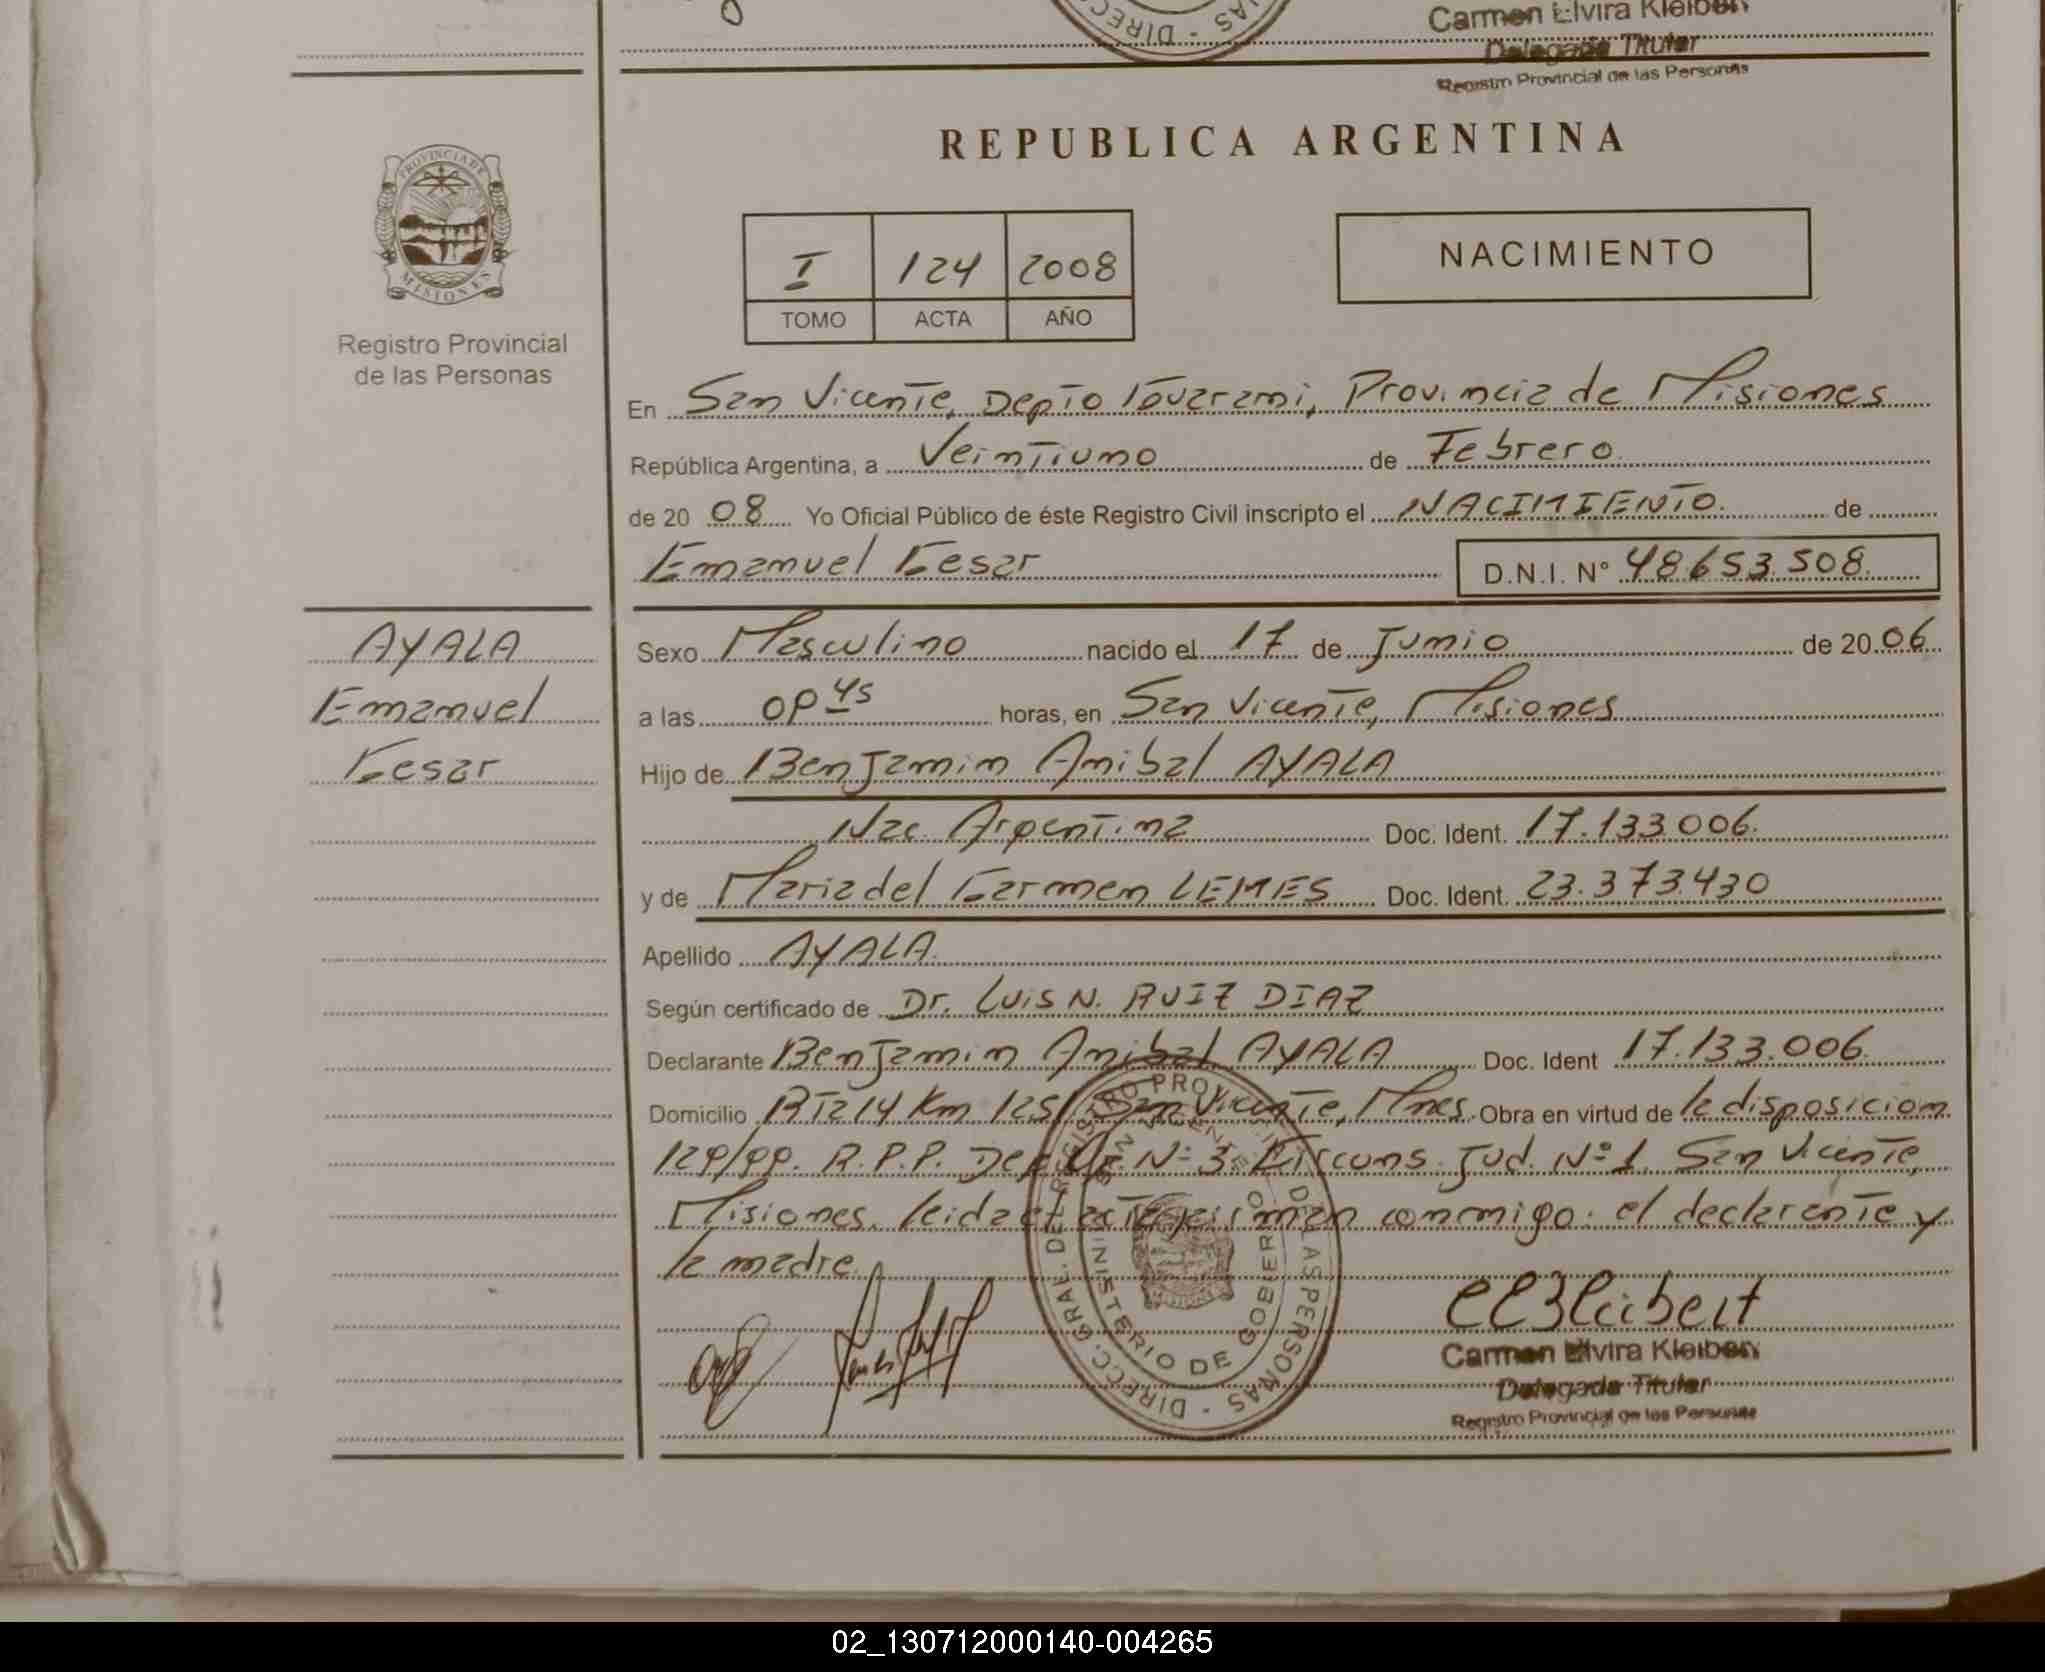 Carmen Elvira Kleibert
Delegada Titular
Registro Provincial de las Personas
REPUBLICA ARGENTINA
PROVINCIA DE
MISIONES
Registro Provincial
de las Personas
I 124 2008
TOMO ACTA AÑO
NACIMIENTO
En San Vicente, Depto Guarani, Provincia de Misiones
República Argentina, a Veintiuno de Febrero
de 20 08 Yo Oficial Público de éste Registro Civil inscripto el NACIMIENTO. de
Emanuel Cesar D.N.I. N° 48653.508.
AYALA
Emanuel
Cesar
Sexo Masculino nacido el 17 de Junio de 20 06
a las 09 45 horas, en San Vicente, Misiones
Hijo de Benjamin Anibal AYALA
Nac. Argentina Doc. Ident. 17.133.006.
y de Maria del Carmen LEMES Doc. Ident. 23.373.430
Apellido AYALA.
Según certificado de Dr. Luis N. RUIZ DIAZ
Declarante Benjamin Anibal AYALA Doc. Ident 17.133.006.
Domicilio RTa 14 Km 1251 San Vicente, Mnes. Obra en virtud de la disposicion
129/99. R.P.P. N° 3 Circuns. Jud. N° 1. San Vicente,
Misiones. leida el acta firman conmigo. el declarante y
la madre.
DIRECC. GRAL. DE REGISTRO PROVINCIAL DE LAS PERSONAS
MINISTERIO DE GOBIERNO
SAN VICENTE
Carmen Elvira Kleibert
Delegada Titular
Registro Provincial de las Personas
02_130712000140-004265